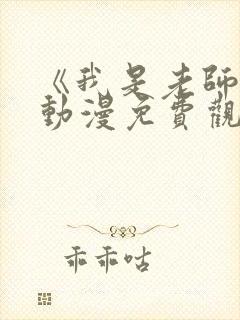 《我是老師
動漫免費觀
乖乖咕